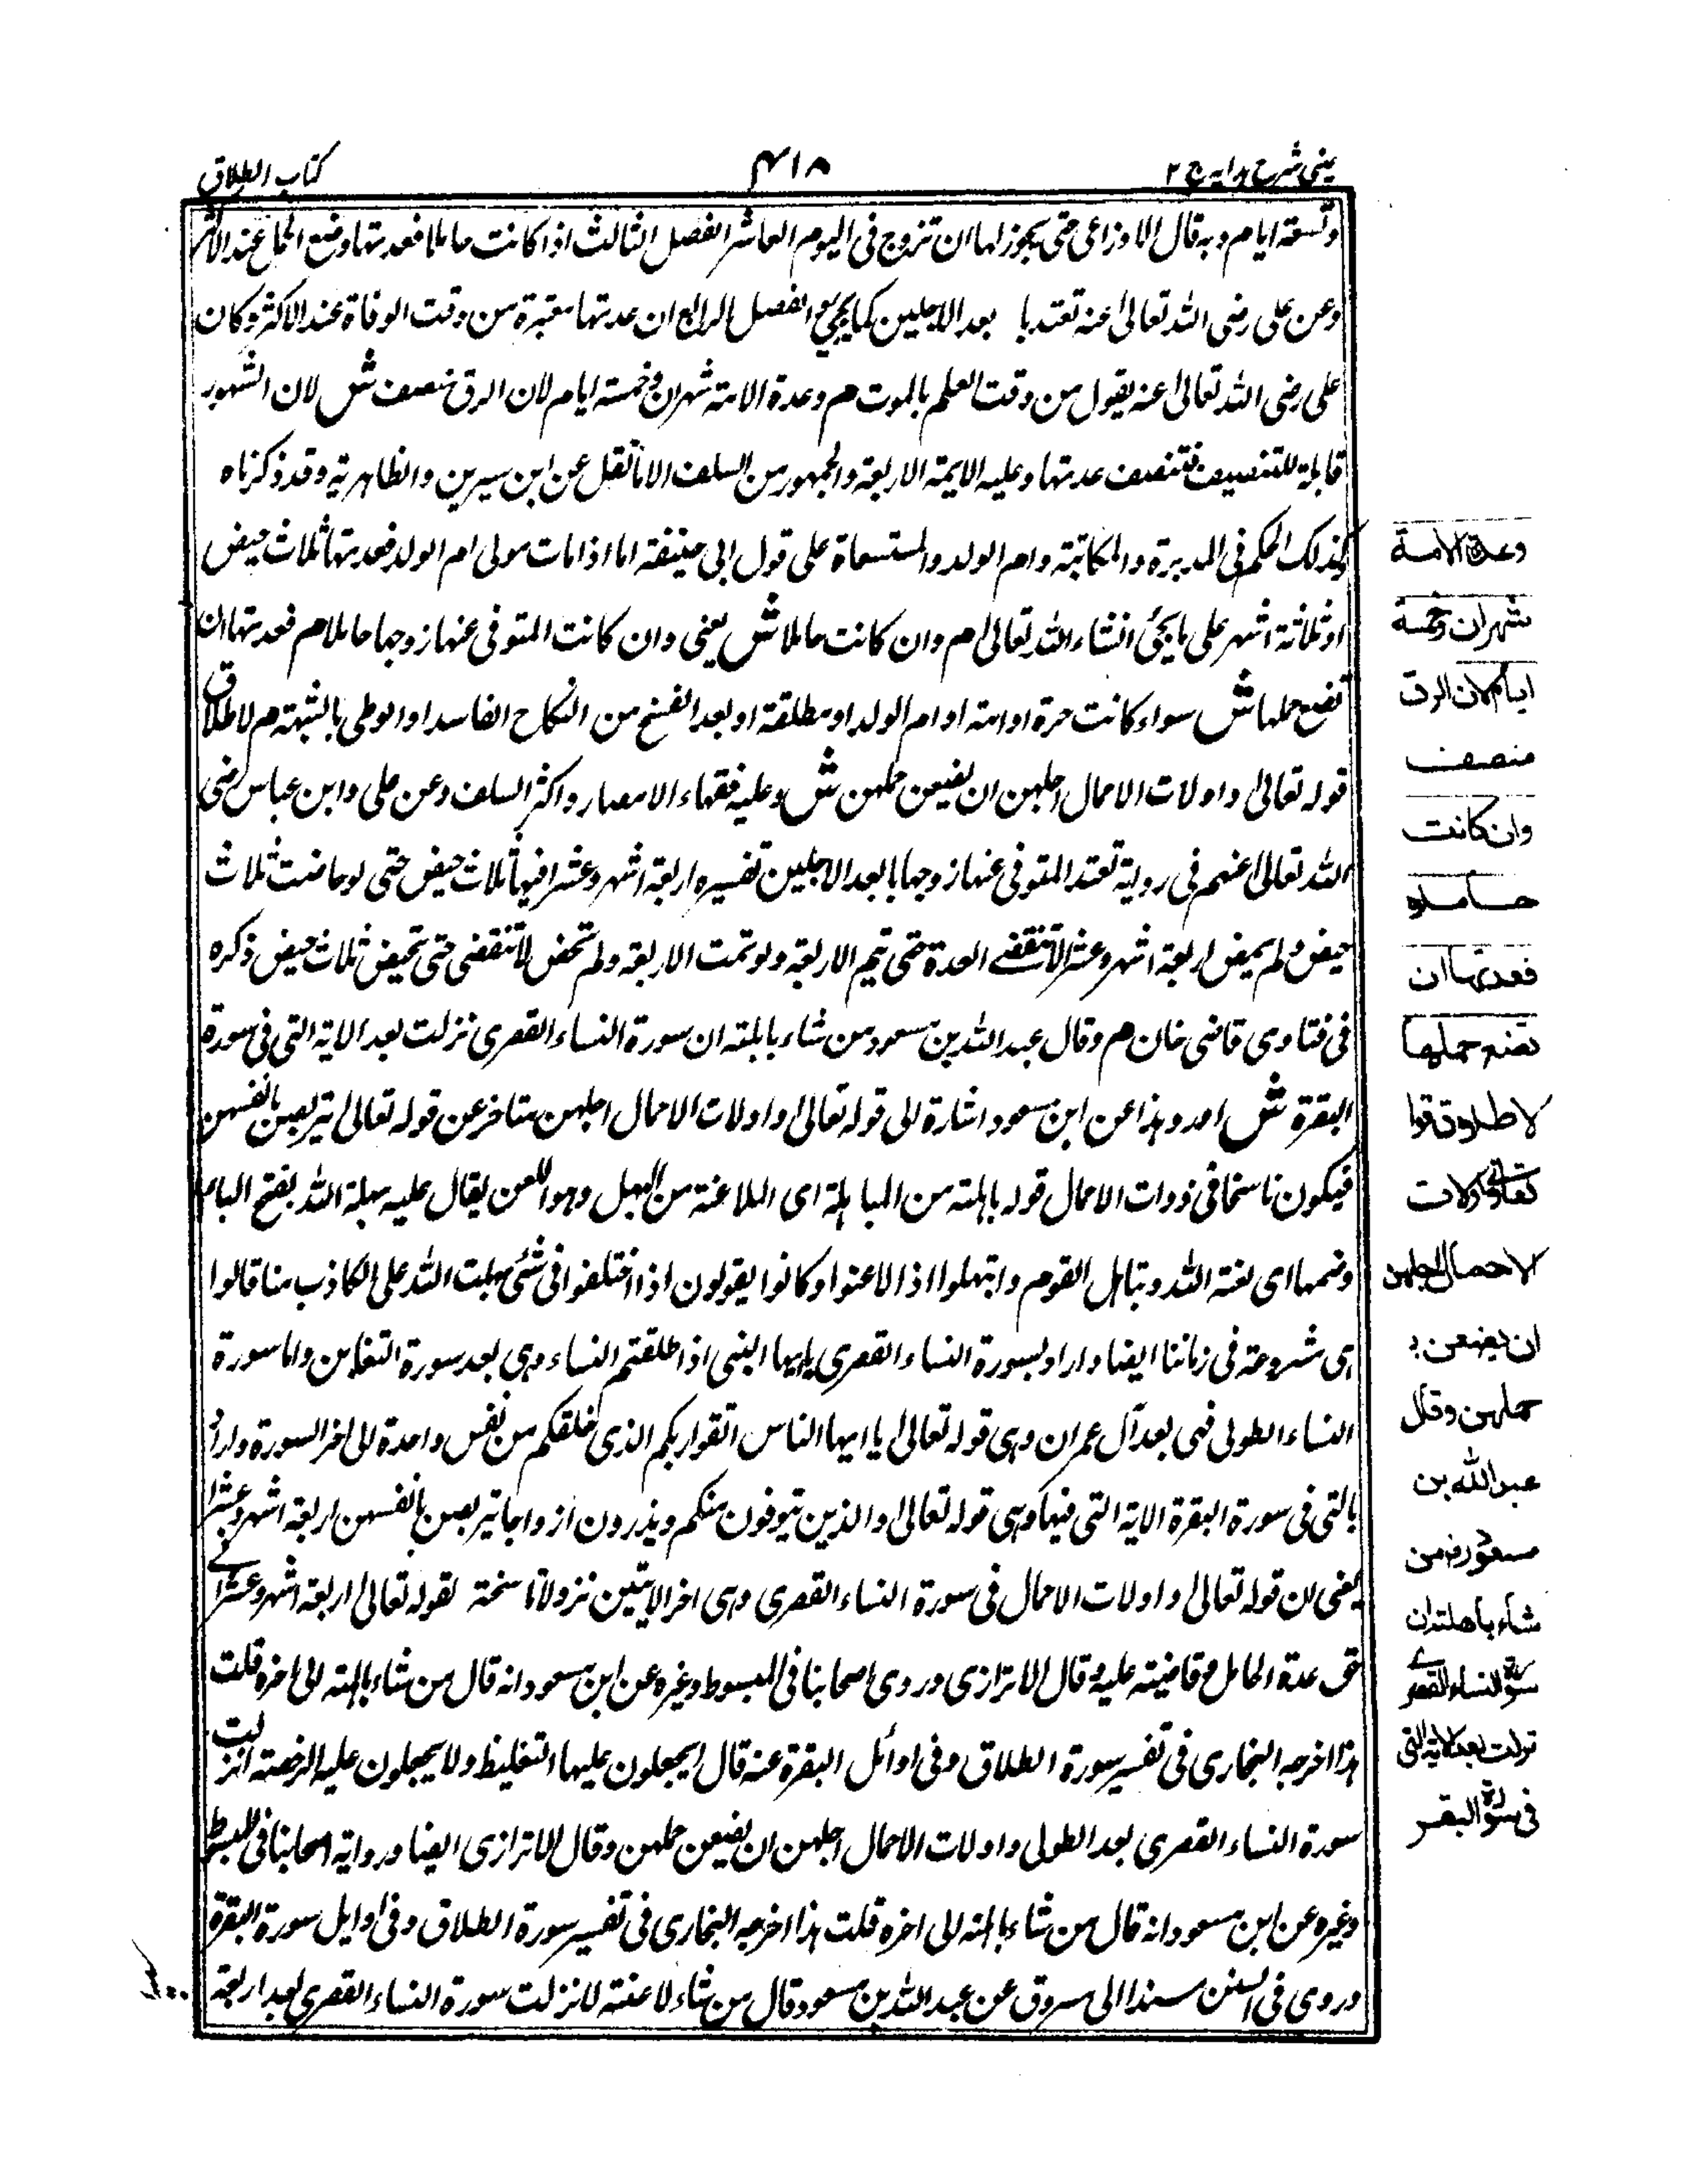 عینی شرح هدایه ج ۲
۴۱۸
کتاب الطلاق
وتسعة ایام وبه قال الاوزاعی حتی یجوز لها ان تزوج فی الیوم العاشر الفصل الثالث اذا کانت حاملا فعدتها وضع الحمل عند الاکثر
وعن علی رضی الله تعالی عنه تعتد با بعد الاجلین کما یجئ والفصل الرابع ان عدتها معتبرة من وقت الوفاة عند الاکثر وکان
علی رضی الله تعالی عنه یقول من وقت العلم بالموت م وعدة الامة شهران وخمسة ایام لان الرق منصف ش لان الشهور
قابلة للتنصیف فتنصف عدتها وعلیه الایمة الاربعة والجمهور من السلف الا ما نقل عن ابن سیرین والظاهریة وقد ذکرناه
کذلک الحکم فی المدبرة والمکاتبة وام الولد والمستسعاة علی قول ابی حنیفة اما اذا مات مولی ام الولد فعدتها ثلاث حیض
او ثلاثة اشهر علی ما یجئ انشاء الله تعالی م وان کانت حاملا ش یعنی وان کانت المتوفی عنها زوجها حاملا م فعدتها ان
تضع حملها ش سواء کانت حرة او امة او ام الولد او مطلقة او بعد الفسخ من النکاح الفاسد او الوطی بالشبهة م لاطلاق
قوله تعالی واولات الاحمال اجلهن ان یضعن حملهن ش وعلیه فقهاء الامصار واکثر السلف وعن علی وابن عباس رضی
الله تعالی عنهم فی روایة تعتد المتوفی عنها زوجها بابعد الاجلین تفسیره اربعة اشهر وعشرا فیها ثلاث حیض حتی لو حاضت ثلاث
حیض ولم یمض اربعة اشهر وعشر لا تنقضے العدة حتی تتم الاربعة ولو تمت الاربعة ولم تحض لا تنقضی حتی تحیض ثلاث حیض ذکره
فی فتاوی قاضی خان م وقال عبد الله بن مسعود من شاء باهلته ان سورة النساء القصری نزلت بعد الایة التی فی سورة
البقرة ش وهذا عن ابن مسعود اشارة الی قوله تعالی واولات الاحمال اجلهن متاخر عن قوله تعالی یتربصن بانفسهن
فیکون ناسخا فی ذوات الاحمال قوله باهلته من المباهلة ای الملاعنة من البهل وهو اللعن یقال علیه بهلة الله بفتح الباء
وضمها ای لعنة الله وتباهل القوم وابتهلوا اذا لاعنوا وکانوا یقولون اذا اختلفوا فی شئی بهلت الله علی الکاذب منا قالوا
هی مشروعة فی زماننا ایضا واراد بسورة النساء القصری یا ایها النبی اذا طلقتم النساء وهی بعد سورة التغابن واما سورة
النساء الطولی فهی بعد آل عمران وهی قوله تعالی یا ایها الناس اتقوا ربکم الذی خلقکم من نفس واحدة الی اخر السورة واراد
بالتی فی سورة البقرة الایة التی فیها وهی قوله تعالی والذین یتوفون منکم ویذرون ازواجا یتربصن بانفسهن اربعة اشهر وعشرا
یعنی ان قوله تعالی واولات الاحمال فی سورة النساء القصری وهی اخر الایتین نزولا ناسخة لقوله تعالی اربعة اشهر وعشرا فے
حق عدة الحامل قاضیة علیه قال الاترازی وروی اصحابنا فی المبسوط وغیره عن ابن مسعود انه قال من شاء باهلته الی اخره قلت
هذا اخرجه البخاری فی تفسیر سورة الطلاق وفی اوائل البقرة عنه قال ایجعلون علیها التغلیظ ولا یجعلون علیه الرخصة انزلت
سورة النساء القصری بعد الطولی واولات الاحمال اجلهن ان یضعن حملهن وقال الاترازی ایضا وروایة اصحابنا فی المبسوط
وغیره عن ابن مسعود انه قال من شاء باهلته الی اخره قلت هذا اخرجه البخاری فی تفسیر سورة الطلاق وفی اوایل سورة البقرة
وروی فی السنن مسندا الی مسروق عن عبد الله بن مسعود قال من شاء لاعنته لانزلت سورة النساء القصری بعد اربعة
وعدة الامة
شهران وخمسة
ایام لان الرق
منصف
وان کانت
حاملا
فعدتها ان
تضع حملها
لاطلاق قوله
تعالی واولات
الاحمال اجلهن
ان یضعن
حملهن وقال
عبد الله بن
مسعود رض من
شاء باهلته ان
سورة النساء القصرے
نزلت بعد الایة التی
فی سورة البقر